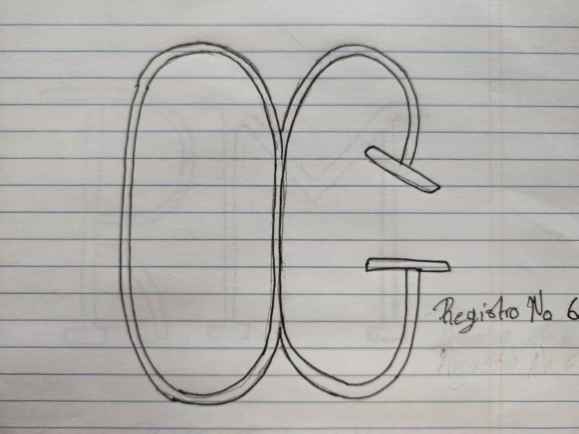 OG
Registro No 6